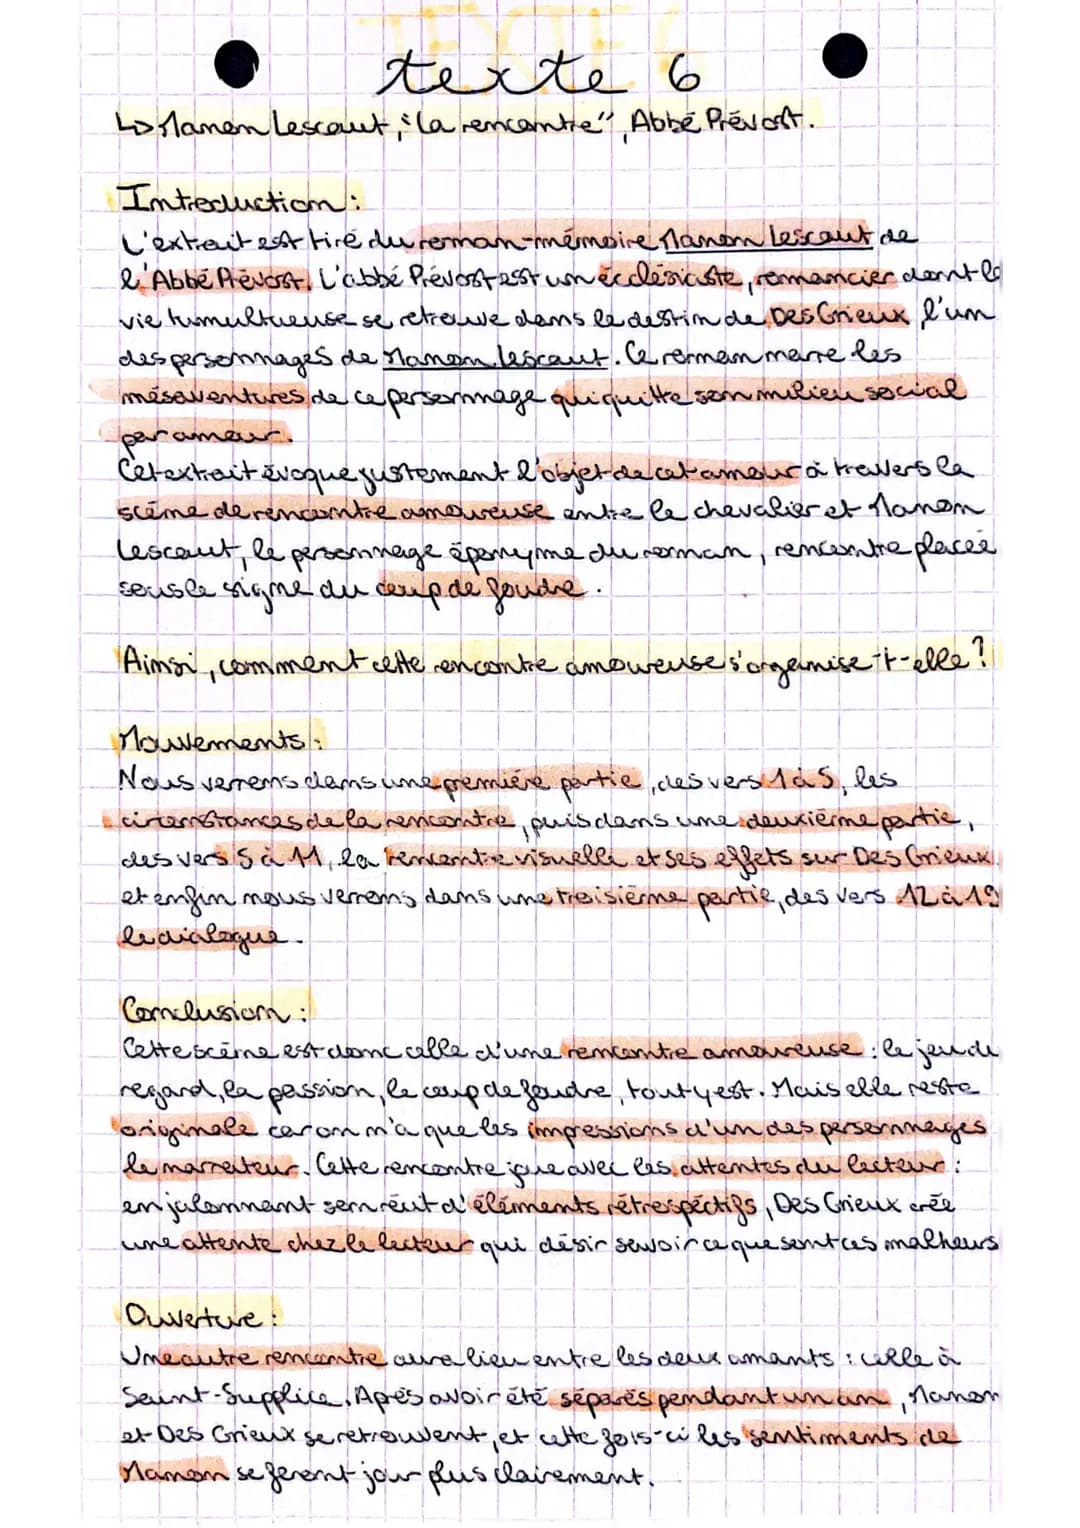 texte 6
↳ Manon Lescaut, "la rencontre", Abbé Prévost.
Introduction :
L'extrait est tiré du roman-mémoire Manon Lescaut de
l'Abbé Prévost. L'abbé Prévost est un écclésiaste, romancier dont la
vie tumultueuse se retrouve dans le destin de Des Grieux, l'un
des personnages de Manon Lescaut. Ce roman narre les
mésaventures de ce personnage qui quitte son milieu social
par amour.
Cet extrait évoque justement l'objet de cet amour à travers la
scène de rencontre amoureuse entre le chevalier et Manon
Lescaut, le personnage éponyme du roman, rencontre placée
sous le signe du coup de foudre.
Ainsi, comment cette rencontre amoureuse s'organise-t-elle ?
Mouvements :
Nous verrons dans une première partie, des vers 1 à 5, les
circonstances de la rencontre, puis dans une deuxième partie,
des vers 5 à 11, la rencontre visuelle et ses effets sur Des Grieux
et enfin nous verrons dans une troisième partie, des vers 12 à 19
le dialogue.
Conclusion :
Cette scène est donc celle d'une rencontre amoureuse : le jeu de
regard, la passion, le coup de foudre, tout y est. Mais elle reste
originale car on n'a que les impressions d'un des personnages
le narrateur. Cette rencontre joue avec les attentes du lecteur :
en jalonnant son récit d'éléments rétrospéctifs, Des Grieux crée
une attente chez le lecteur qui désir savoir ce que sont ces malheurs
Ouverture :
Une autre rencontre aura lieu entre les deux amants : celle à
Saint-Supplice. Après avoir été séparés pendant un an, Manon
et Des Grieux se retrouvent, et cette fois-ci les sentiments de
Manon se feront jour plus clairement.